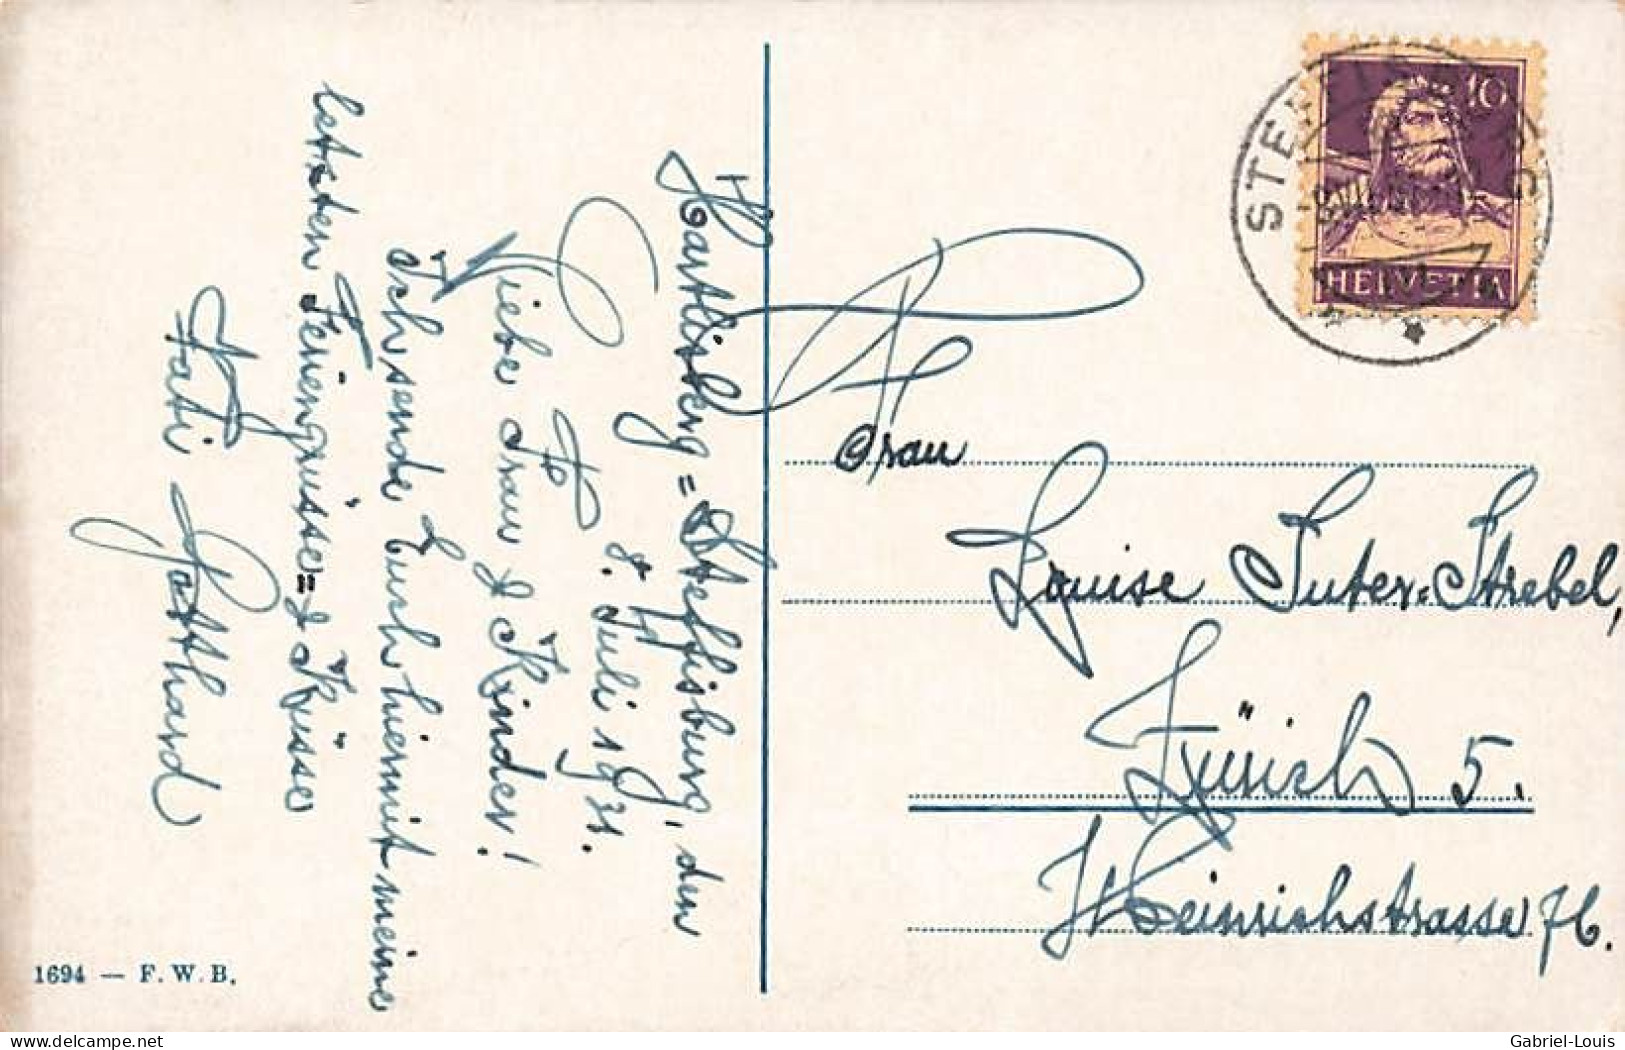 Hartlisberg = Steffisburg, den
8. Juli 1931.
Liebe Frau & Kinder!
Ich sende Euch hiermit meine
letzten Feriengrüsse = & Küsse
Vati Gotthard
1694 — F. W. B.
10
HELVETIA
Frau
Louise Suter=Strebel,
Zürich 5.
Heinrichstrasse 76.
delcampe.net
Gabriel-Louis